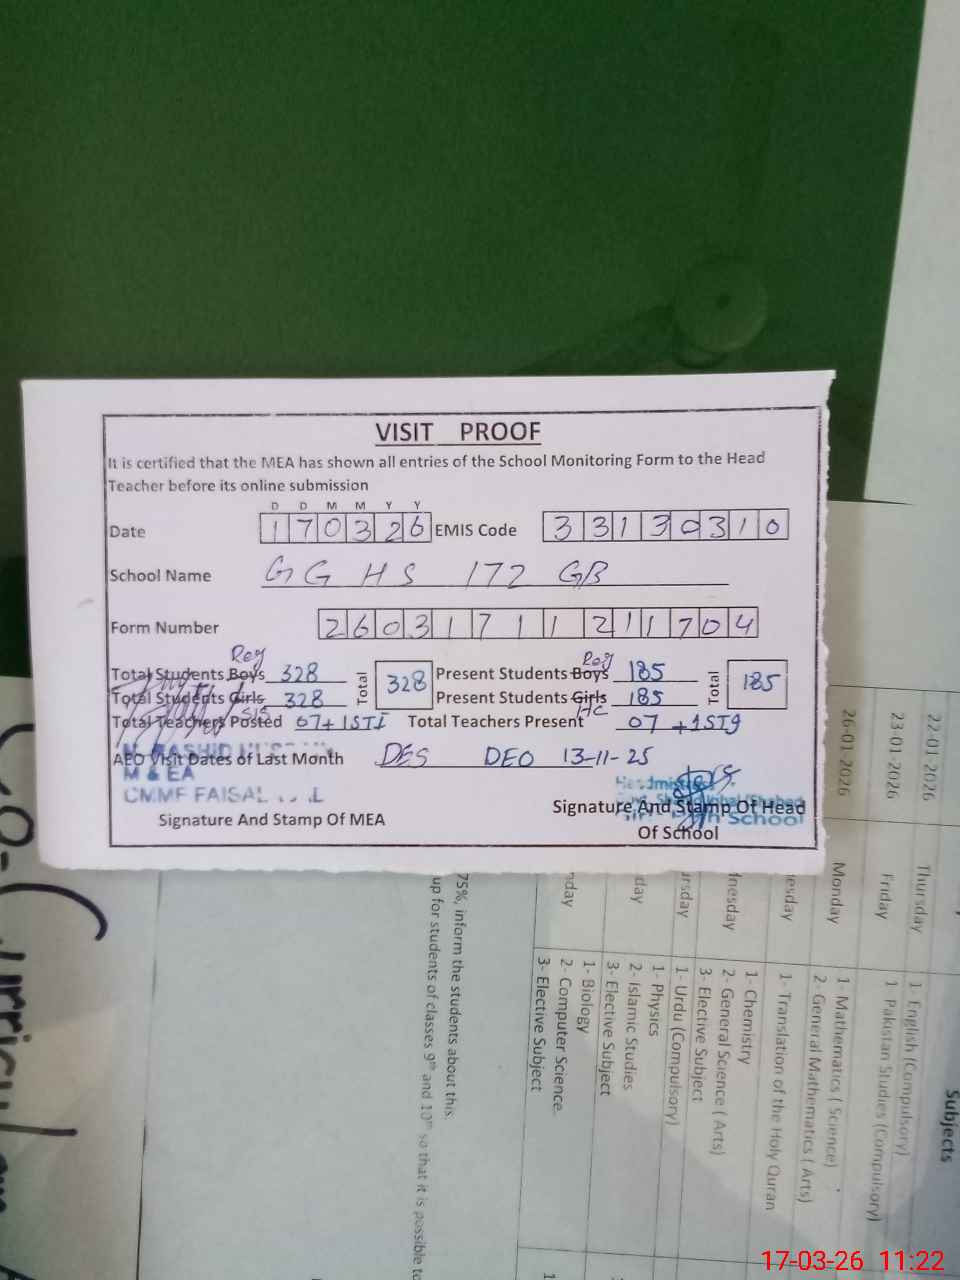 VISIT PROOF
It is certified that the MEA has shown all entries of the School Monitoring Form to the Head
Teacher before its online submission
D D M M Y Y
Date 170326 EMIS Code 33130310
School Name GGHS 172 GB
Form Number 2603171121 1704
Reg Reg
Total Students Boys 328 Total 328 Present Students Boys 185 Total 185
Total Students Girls 328 Present Students Girls 185
Total Teachers Posted 07+1STI Total Teachers Present 07 +1STI
AEO Visit Dates of Last Month DES DEO 13-11-25
M & EA
CMMF FAISAL
Headmistress
High School
Signature And Stamp Of MEA
Signature And Stamp Of Head
Of School
Subjects
22-01-2026 Thursday 1- English (Compulsory)
23-01-2026 Friday 1 Pakistan Studies (Compulsory)
26-01-2026 Monday 1- Mathematics ( Science)
2- General Mathematics ( Arts)
esday 1- Translation of the Holy Quran
dnesday 1- Chemistry
2- General Science ( Arts)
3- Elective Subject
ursday 1- Urdu (Compulsory)
day 1- Physics
2- Islamic Studies
3- Elective Subject
nday 1- Biology
2- Computer Science
3- Elective Subject
75%, inform the students about this.
up for students of classes 9th and 10th so that it is possible to
Co-Curricul
17-03-26 11:22